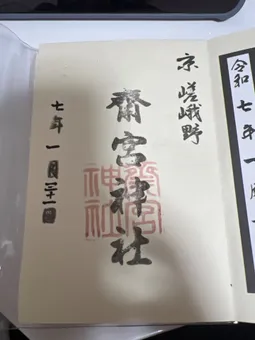 令和七年一月
京 嵯峨野
齋宮神社
齋宮
神社
七年 一月二十一日